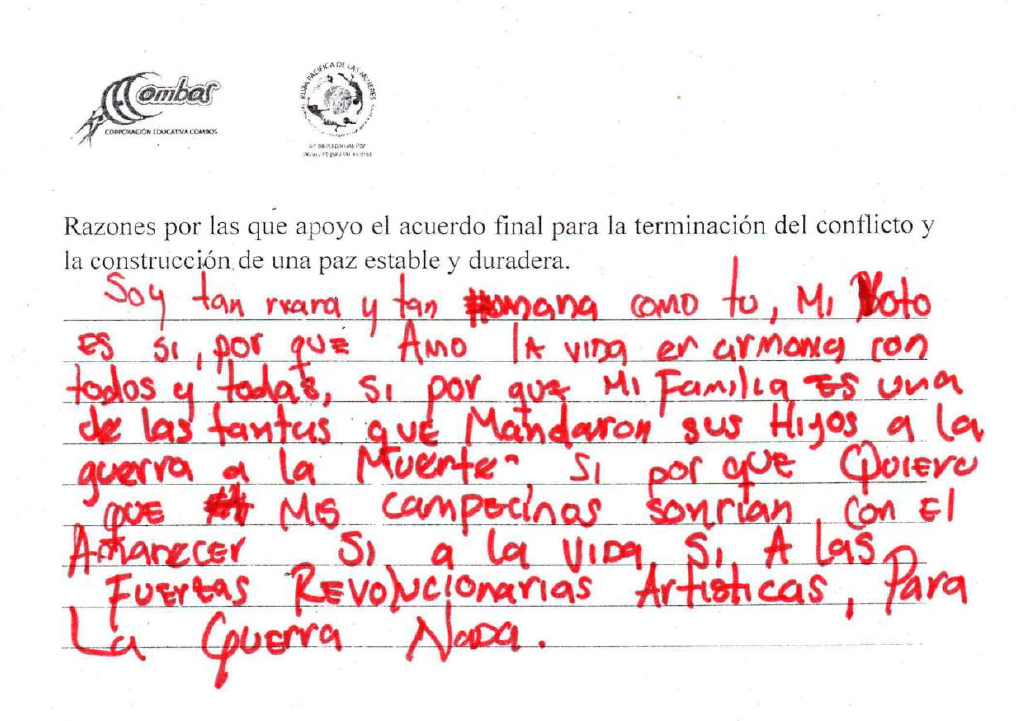 Combos
CORPORACIÓN EDUCATIVA COMBOS
RUTA PACIFICA DE LAS MUJERES
Razones por las que apoyo el acuerdo final para la terminación del conflicto y
la construcción de una paz estable y duradera.
Soy tan rara y tan Humana como tu, Mi Voto
ES SI, por que AMO lA VIDA en armonia con
todos y todas, SI por que Mi Familia ES una
de las tantas que Mandaron sus Hijos a la
guerra a la Muerte SI por que Quiero
que MIS campecinos sonrian con El
Amanecer SI a la VIDA SI A las
Fuerzas REVolucionarias Artisticas, Para
La Guerra NADA.